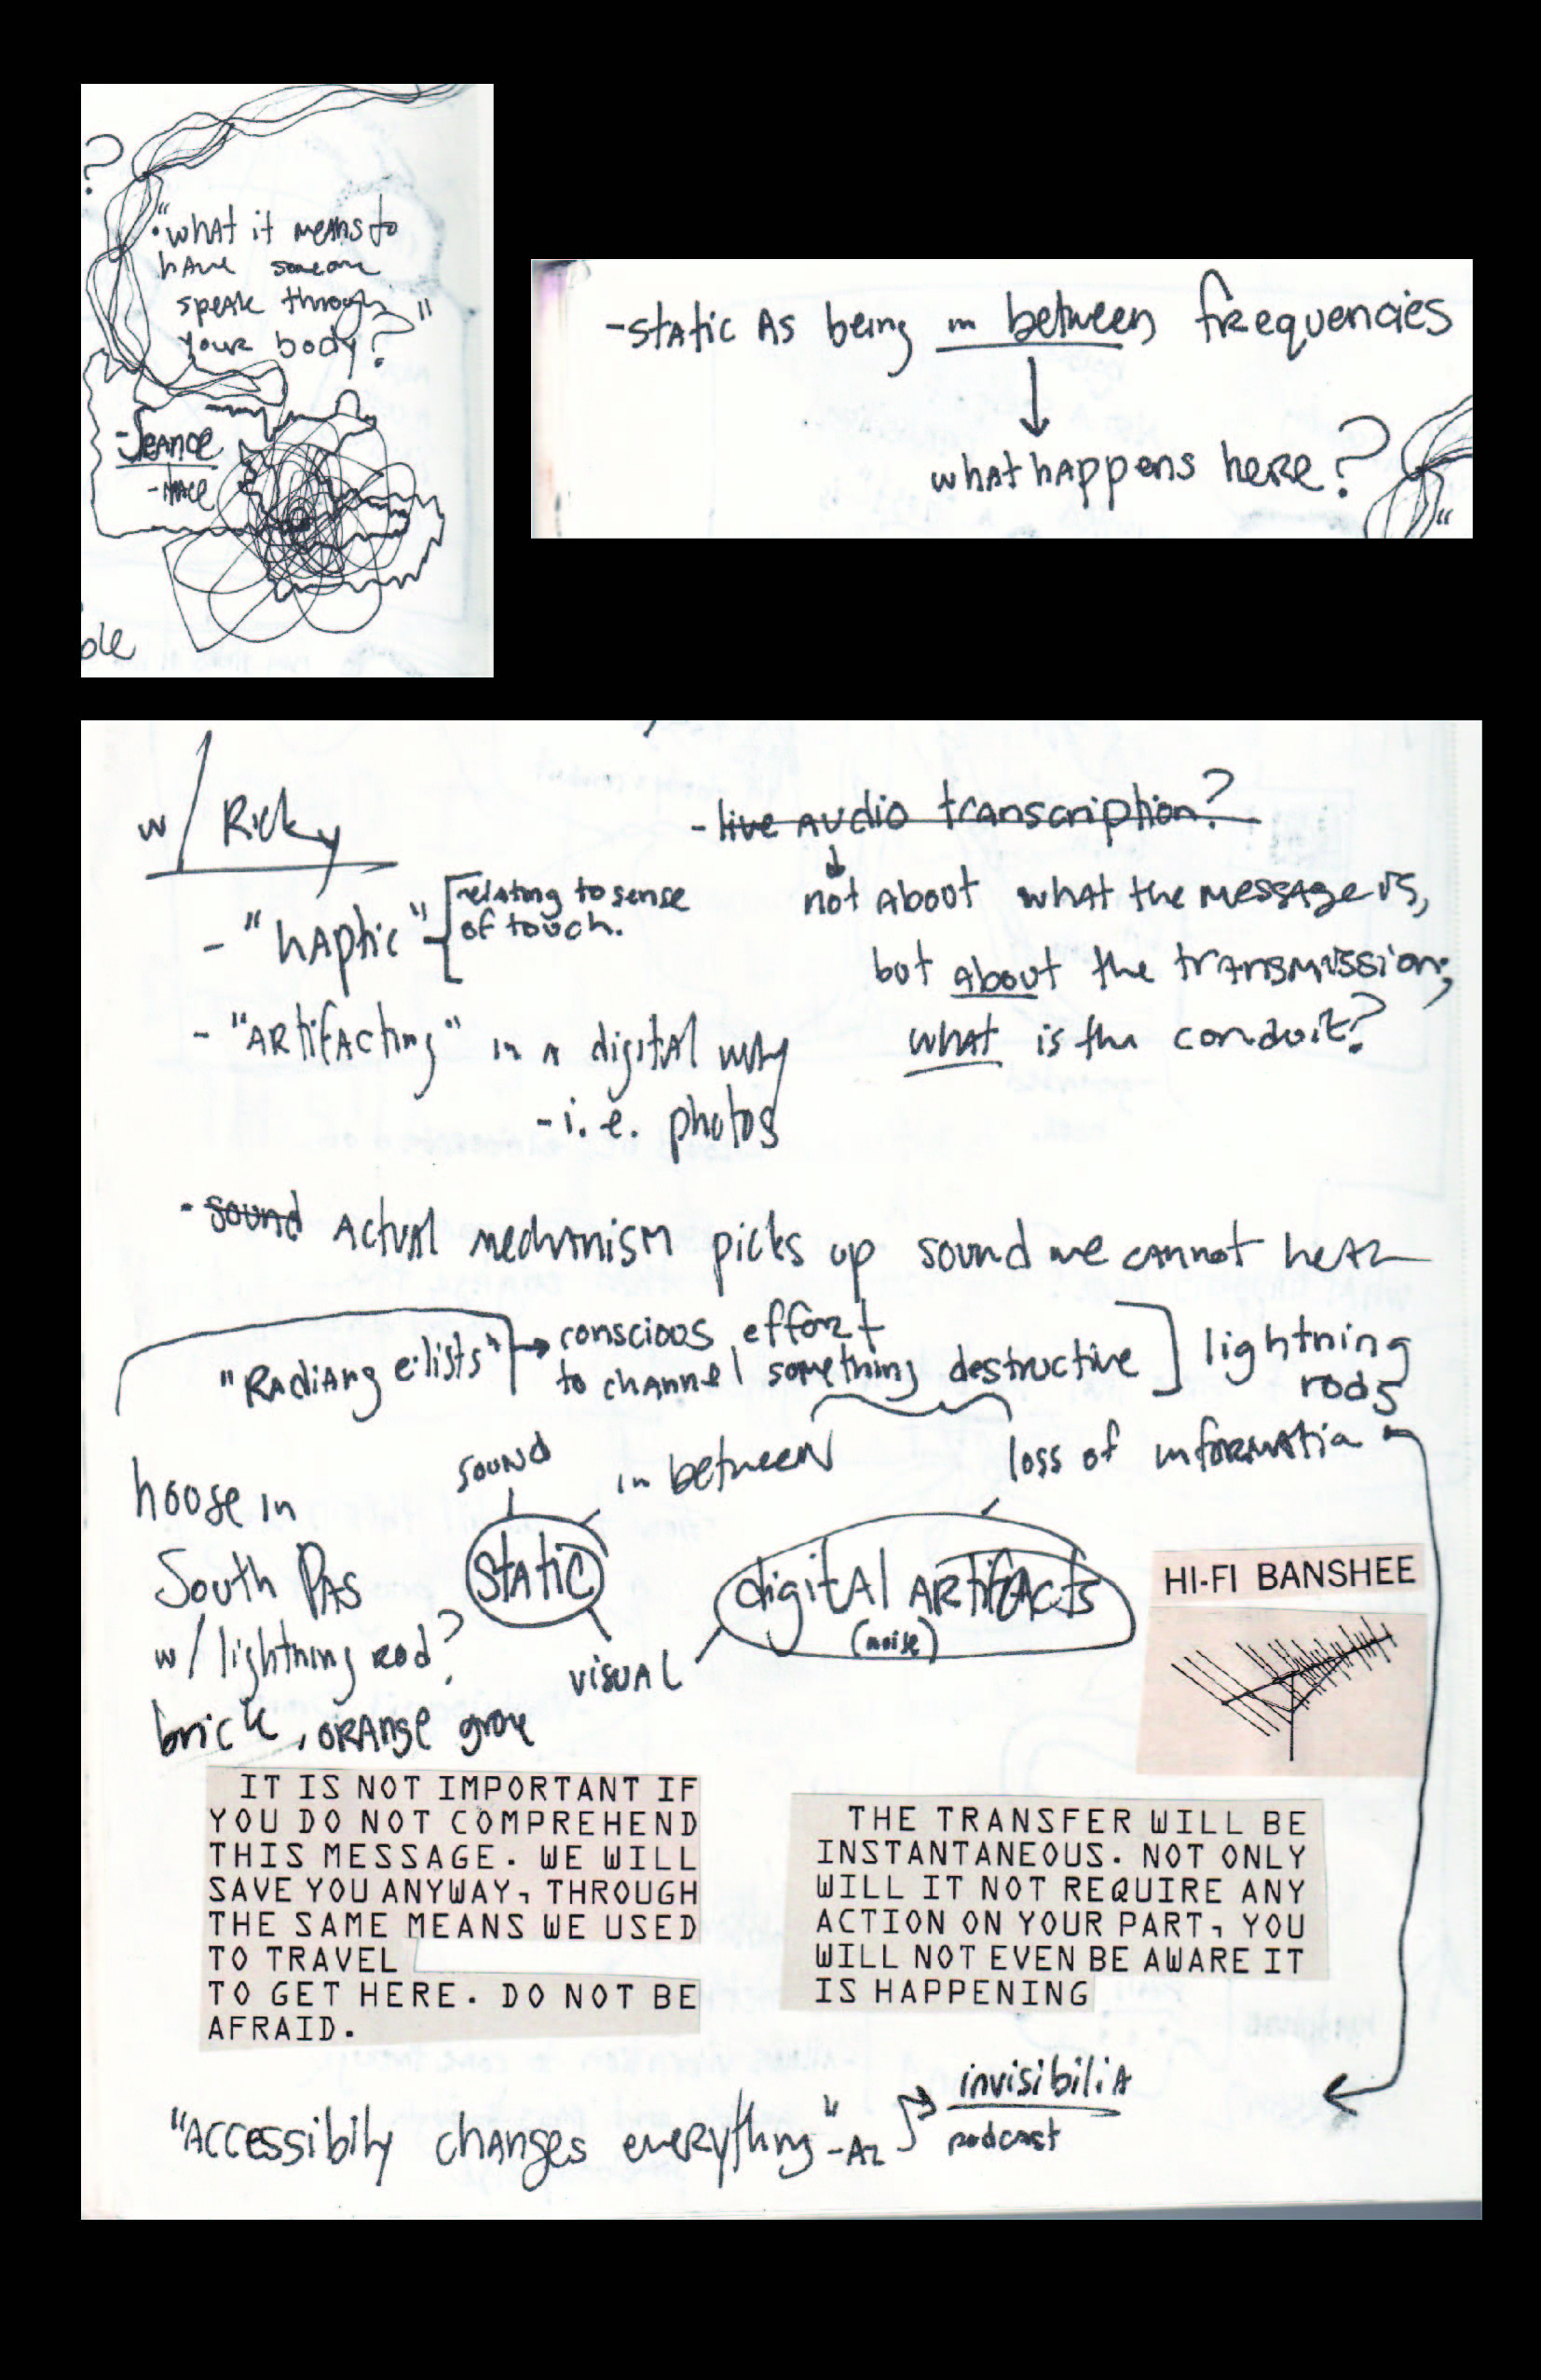 ?
"what it means to
have someone
speak through
your body?"
-Seance
-trace
-static As being in between frequencies
what happens here?
"
w/ Ricky
- "haptic"
relating to sense
of touch.
- "Artifacting" in a digital way
- i.e. photos
- live Audio transcription?
not About what the message is,
but about the transmission;
what is the conduit?
- sound Actual mechanism picks up sound we cannot hear
conscious effort
to channel something destructive
lightning
rods
in between
loss of informatio
sound
static
visual
digital Artifacts
(noise)
house in
South Pas
w/ lightning rod?
brick, orange grove
HI-FI BANSHEE
IT IS NOT IMPORTANT IF
YOU DO NOT COMPREHEND
THIS MESSAGE. WE WILL
SAVE YOU ANYWAY, THROUGH
THE SAME MEANS WE USED
TO TRAVEL
TO GET HERE. DO NOT BE
AFRAID.
THE TRANSFER WILL BE
INSTANTANEOUS. NOT ONLY
WILL IT NOT REQUIRE ANY
ACTION ON YOUR PART, YOU
WILL NOT EVEN BE AWARE IT
IS HAPPENING
"Accessibily changes everything"
invisibilia
podcast